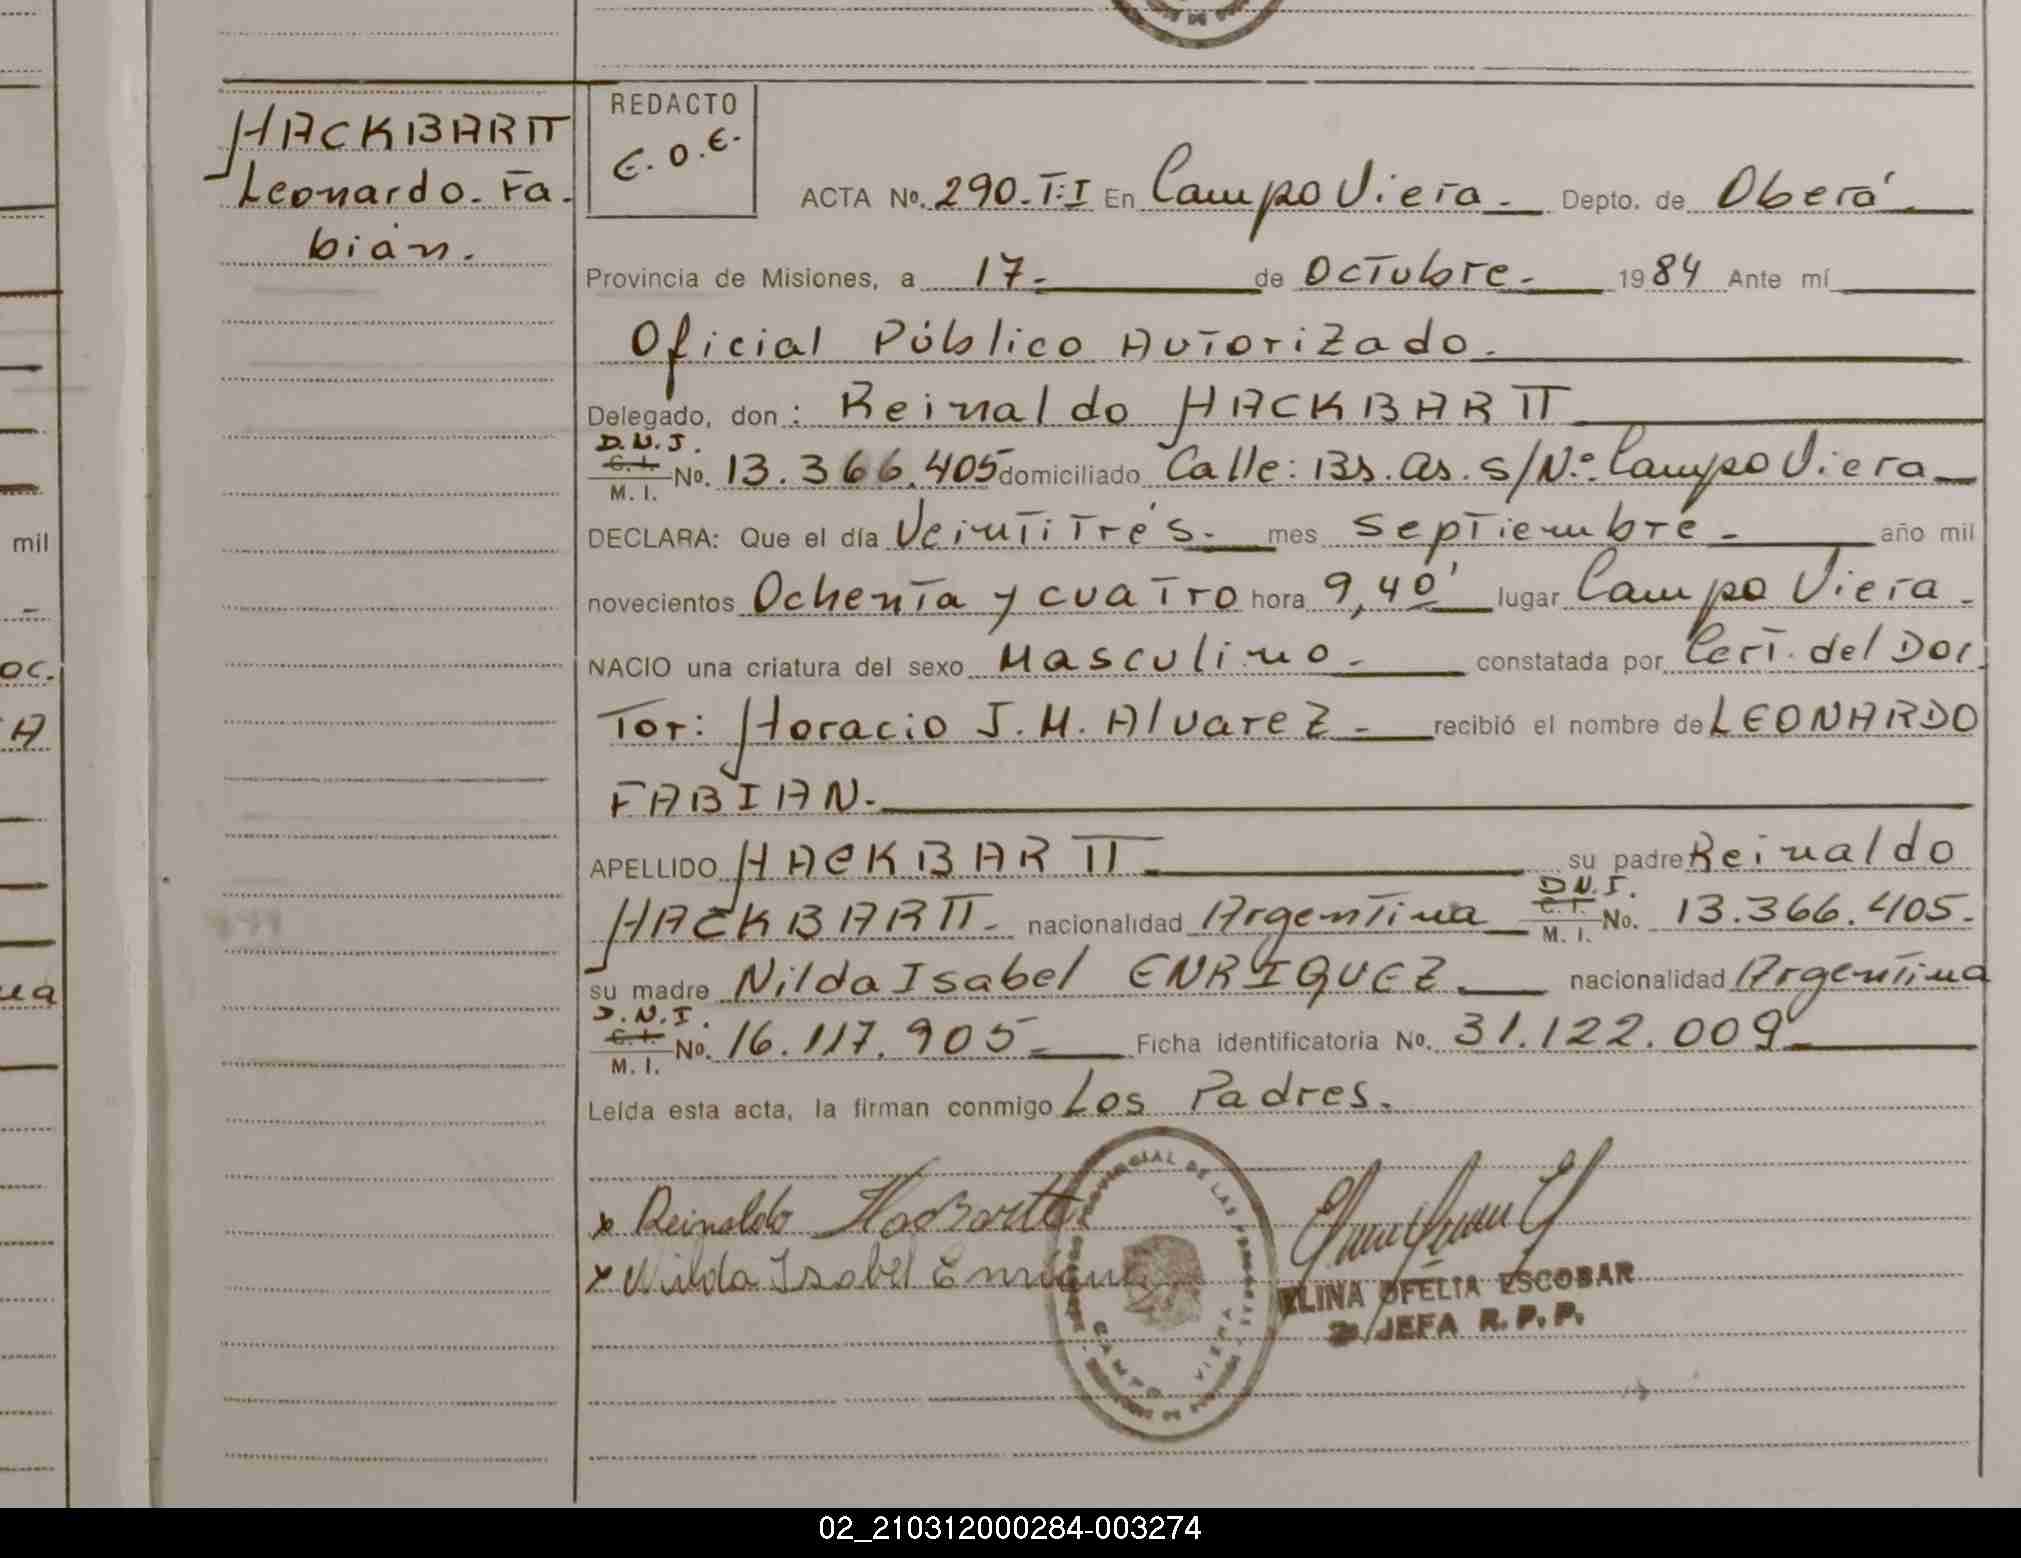 HACKBARTT
Leonardo. Fa.
bián.
REDACTO
E.O.E.
ACTA No. 290-T:I En Campo Viera.- Depto. de Oberá
Provincia de Misiones, a 17.- de Octubre.- 1984 Ante mí
Oficial Público Autorizado.
Delegado, don: Reinaldo HACKBARTT
D.N.I.
C.I.
M. I. No. 13.366.405 domiciliado Calle: Bs. as. s/N.º Campo Viera
DECLARA: Que el día Veintitrés.- mes septiembre.- año mil
novecientos Ochenta y cuatro hora 9,40' lugar Campo Viera.
NACIO una criatura del sexo Masculino.- constatada por Cert. del Doc.
Tor: Horacio J. M. Alvarez.- recibió el nombre de LEONARDO
FABIAN.-
APELLIDO HACKBARTT su padre Reinaldo
HACKBARTT.- nacionalidad Argentina D.N.I.
C.I.
M. I. No. 13.366.405.
su madre Nilda Isabel ENRIQUEZ.- nacionalidad Argentina
D.N.I.
C.I.
M. I. No. 16.117.905.- Ficha identificatoria No. 31.122.009.-
Leída esta acta, la firman conmigo Los Padres.
x Reinaldo
x Nilda Isabel
ELINA OFELIA ESCOBAR
JEFA R.P.P.
CAMPO VIERA
mil
oc.
A
na
02_210312000284-003274